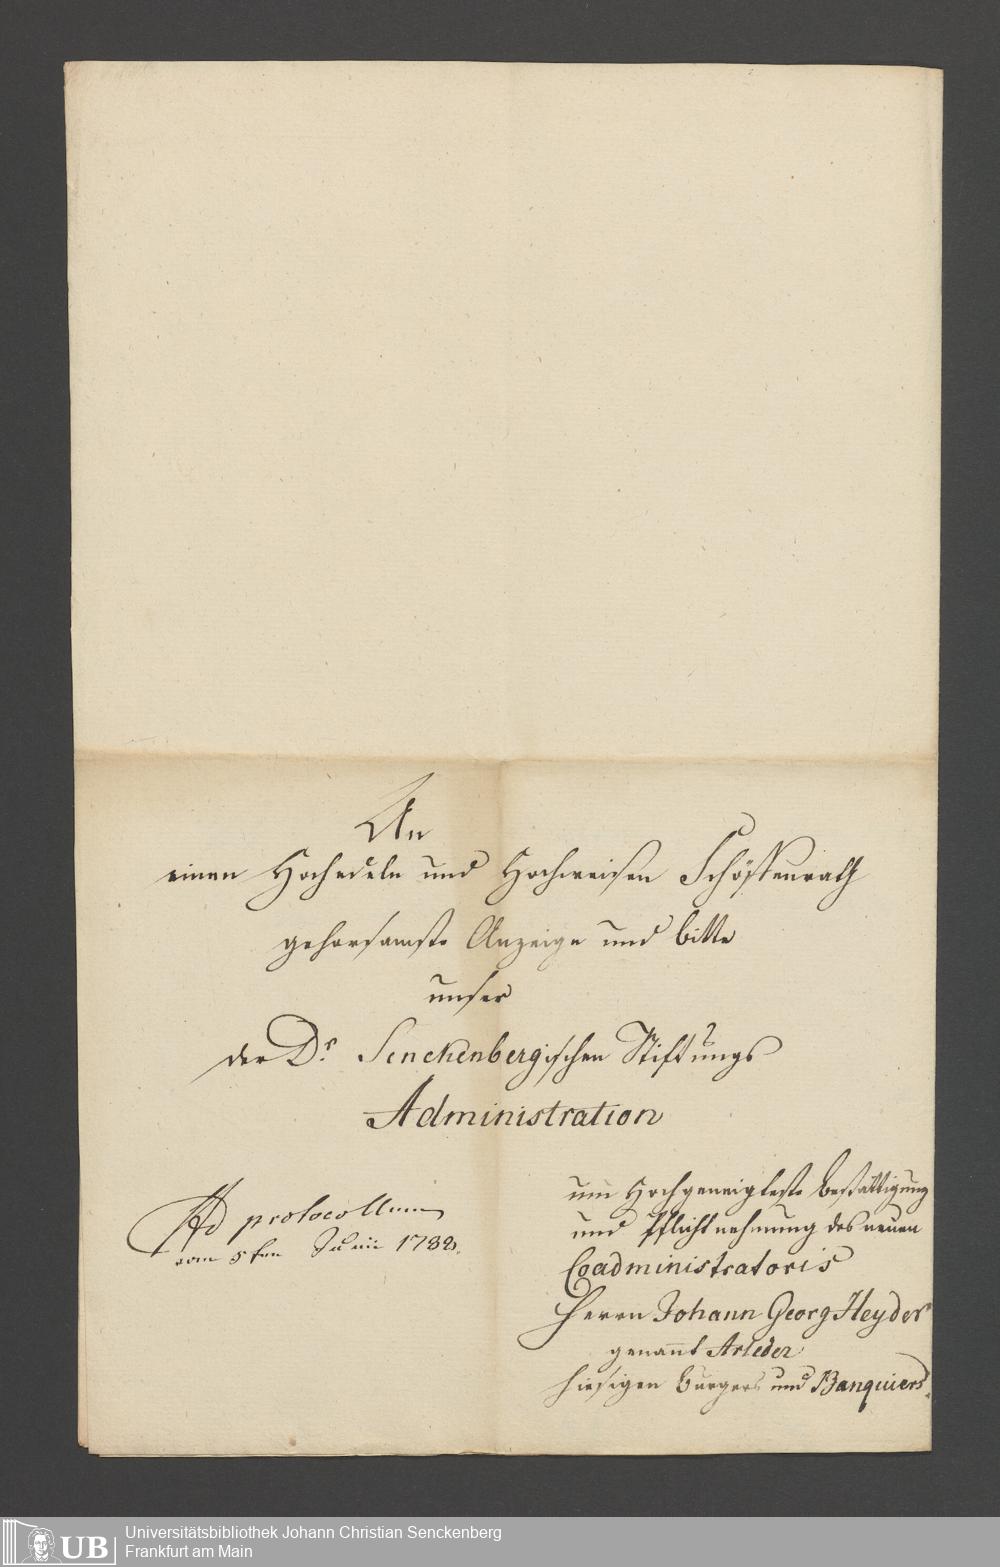 An
einen Hochedeln und Hochweisen Schöffenrath
gehorsamste Anzeige und bitte
unser
der Dr Senckenbergischen Stiftungs
Administration
Ad protocollum
vom 5ten Junii 1788.
um Hochgeneigteste bestättigung
und Pflichtnehmung des neuen
Coadministratoris
Herrn Johann Georg Heyder
genannt Arleder
hiesigen burgers und Banquiers.
UB
Universitätsbibliothek Johann Christian Senckenberg
Frankfurt am Main